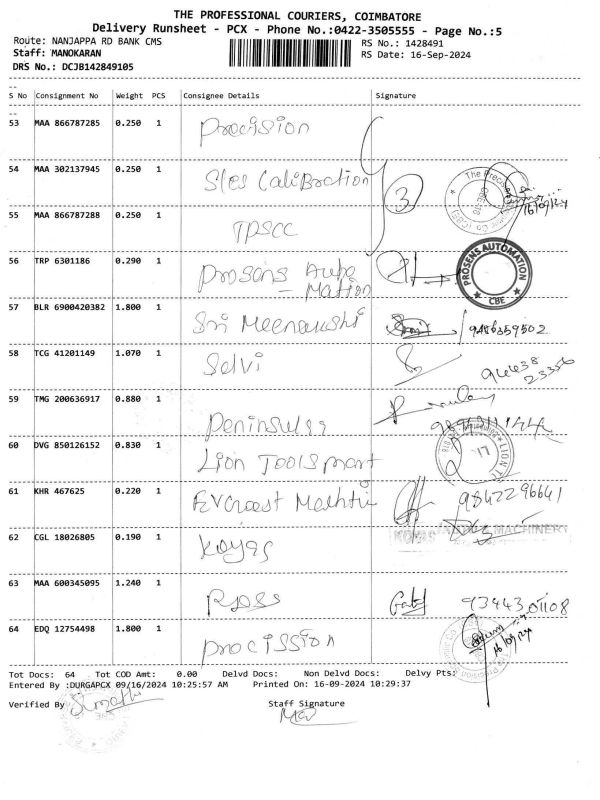 THE PROFESSIONAL COURIERS, COIMBATORE
Delivery Runsheet - PCX - Phone No.:0422-3505555 - Page No.:5
Route: NANJAPPA RD BANK CMS RS No.: 1428491
Staff: MANOKARAN RS Date: 16-Sep-2024
DRS No.: DCJB142849105
S No Consignment No Weight PCS Consignee Details Signature
53 MAA 866787285 0.250 1 Procision
54 MAA 302137945 0.250 1 Sles Calibration 3
16/09/24
55 MAA 866787288 0.250 1 TPSCC
56 TRP 6301186 0.290 1 Prosans Auto
- Mation
PROSENS AUTOMATION
CBE
57 BLR 6900420382 1.800 1 Sri Meenakshi 9486359502
58 TCG 41201149 1.070 1 Selvi 94438
23356
59 TMG 200636917 0.880 1 Peninsulaa
60 DVG 850126152 0.830 1 Lion Tools mart
61 KHR 467625 0.220 1 9842296641
62 CGL 18026805 0.190 1 Koyas
MACHINERY
63 MAA 600345095 1.240 1 9344301108
64 EDQ 12754498 1.800 1 Procission
16/09/24
Tot Docs: 64 Tot COD Amt: 0.00 Delvd Docs: Non Delvd Docs: Delvy Pts:
Entered By :DURGAPCX 09/16/2024 10:25:57 AM Printed On: 16-09-2024 10:29:37
Verified By Staff Signature